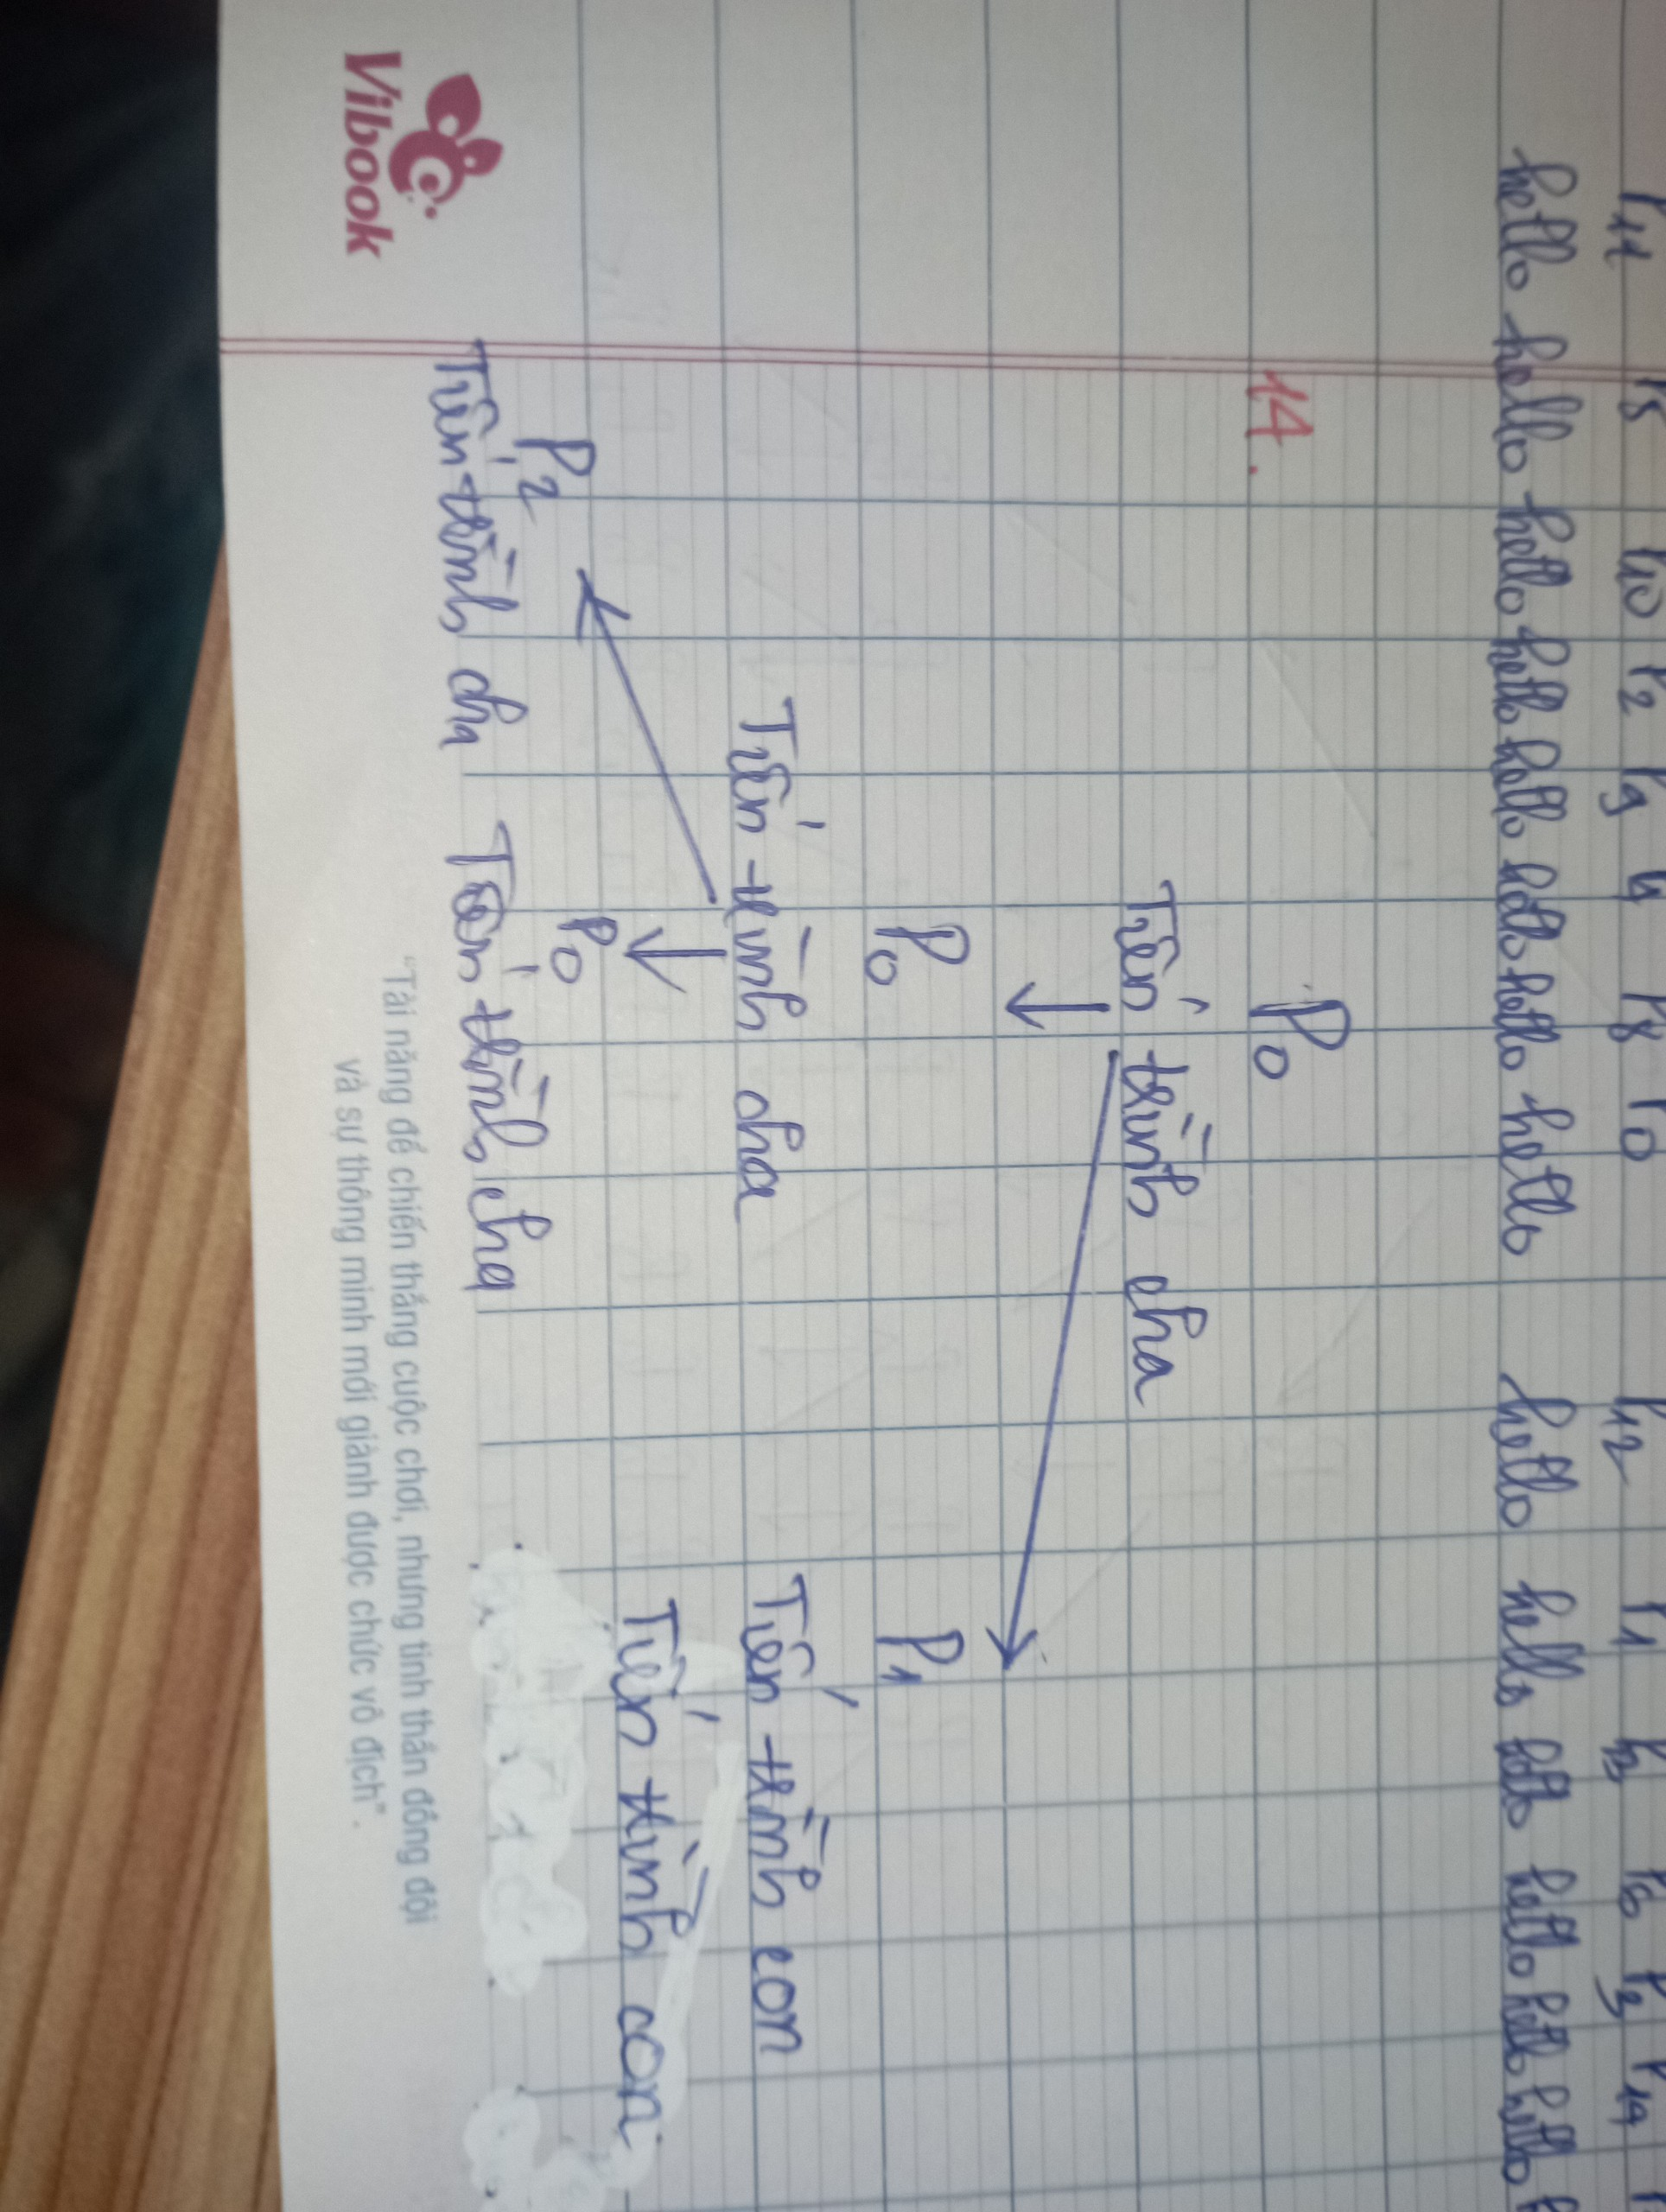 P11 P5 P10 P2 P9 P4 P8 P0 P12 P1 P3 P6 P13 P14
hello hello hello hello hello hello hello hello hello hello hello hello hello hello
14.
P0
Tiến trình cha
P0 P1
Tiến trình cha Tiến trình con
P2 P0 Tiến trình con
Tiến trình cha Tiến trình cha
"Tài năng để chiến thắng cuộc chơi, nhưng tinh thần đồng đội
và sự thông minh mới giành được chức vô địch".
Vibook